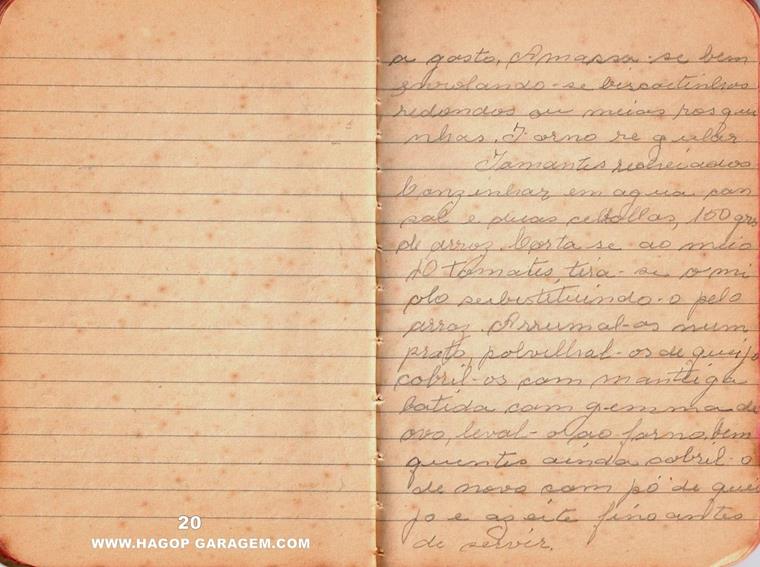 a gosto. Amassa-se bem
enrolando-se biscoitinhos
redondos ou meias rosqui
nhas. Forno regular
Tamantes recheiados
Conzinhar em agua con
sal e duas cebollas, 100 grs
de arroz. Corta-se ao meio
10 tomates, tira-se o mi
olo substituindo-o pelo
arroz. Arrumal-os num
prato, polvilhal-os de queijo
cobril-os com manteiga
batida com gemma de
ovo, leval-o ao forno, bem
quentes ainda cobril-o
de novo com pó de quei
jo e azeite fino antes
de servir.
20
WWW.HAGOP GARAGEM.COM